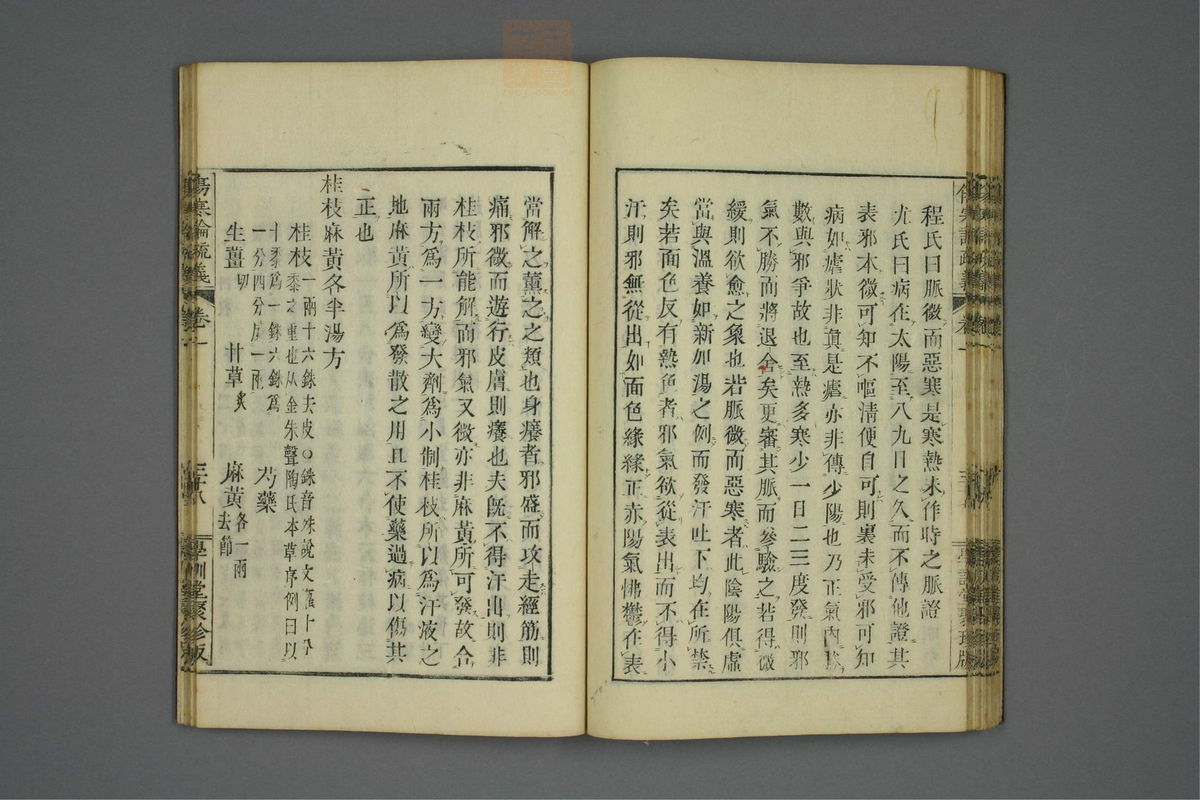 程氏曰脈微而惡寒是寒熱未作時之脈證
尤氏曰病在太陽至八九日之久而不傳他證其
表邪本微可知不嘔清便自可則裏未受邪可知
病如瘧狀非眞是瘧亦非傳少陽也乃正氣內勝
數與邪爭故也至熱多寒少一日二三度發則邪
氣不勝而將退舍矣更審其脈而參驗之若得微
緩則欲愈之象也若脈微而惡寒者此陰陽俱虛
當與溫養如新加湯之例而發汗吐下均在所禁
矣若面色反有熱色者邪氣欲從表出而不得小
汗則邪無從出如面色緣緣正赤陽氣怫鬱在表
當解之薰之之類也身癢者邪盛而攻走經筋則
痛邪微而遊行皮膚則癢也夫旣不得汗出則非
桂枝所能解而邪氣又微亦非麻黃所可發故合
兩方爲一方變大劑爲小制桂枝所以爲汗液之
地麻黃所以爲發散之用且不使藥過病以傷其
正也
桂枝麻黃各半湯方
桂枝一兩十六銖去皮○銖音殊說文權十分
黍之重也从金朱聲陶氏本草序例曰以
十黍爲一銖六銖爲
一分四分成一兩
芍藥
生薑切
甘草炙
麻黃各一兩
去節
傷寒論疏義
卷一
三十八
學訓堂聚珍版